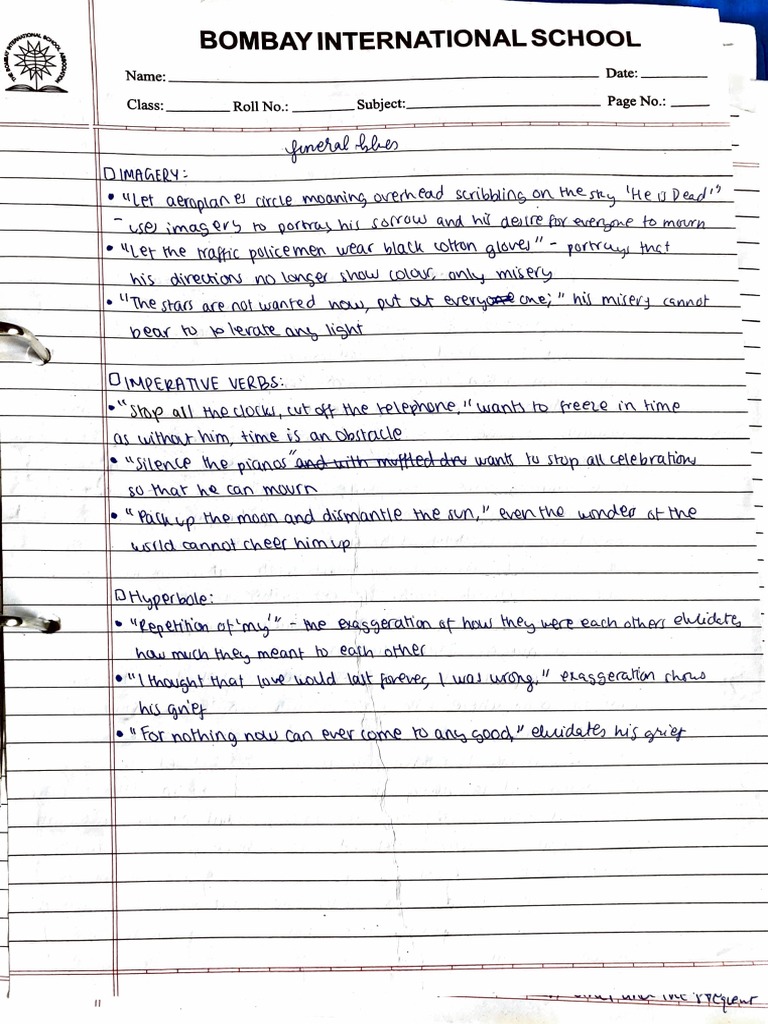 BOMBAY INTERNATIONAL SCHOOL
THE BOMBAY INTERNATIONAL SCHOOL ASSOCIATION
Name: Date:
Class: Roll No.: Subject: Page No.:
funeral blues
IMAGERY:
• "Let aeroplanes circle moaning overhead scribbling on the sky 'He is Dead'"
- uses imagery to portray his sorrow and his desire for everyone to mourn
• "Let the traffic policemen wear black cotton gloves" - portrays that
his directions no longer show colour, only misery
• "The stars are not wanted now, put out everyone one;" his misery cannot
bear to tolerate any light
IMPERATIVE VERBS:
• "Stop all the clocks, cut off the telephone," wants to freeze in time
as without him, time is an obstacle
• "Silence the pianos" and with muffled dru wants to stop all celebrations
so that he can mourn
• "Pack up the moon and dismantle the sun," even the wonder of the
world cannot cheer him up
Hyperbole:
• "Repetition of 'my'" - the exaggeration of how they were each others elucidates
how much they meant to each other
• "I thought that love would last forever, I was wrong," exaggeration shows
his grief
• "For nothing now can ever come to any good," elucidates his grief